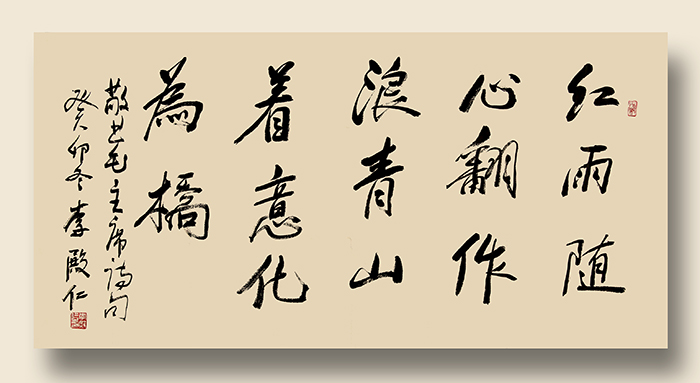 红雨随
心翻作
浪青山
着意化
為橋
敬书毛主席诗句
癸卯冬 李殿仁